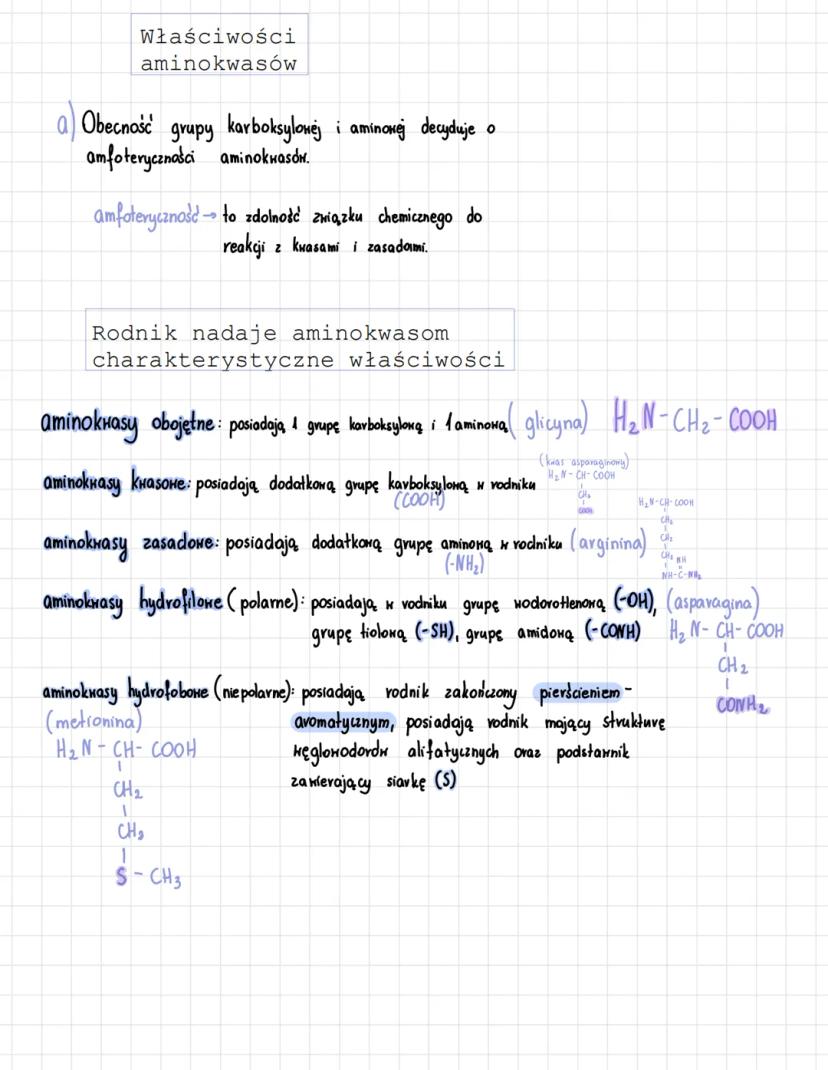 Właściwości
aminokwasów
a) Obecność grupy karboksylowej i aminowej decyduje o
amfoteryczności aminokwasów.
amfoteryczność → to zdolność związku chemicznego do
reakcji z kwasami i zasadami.
Rodnik nadaje aminokwasom
charakterystyczne właściwości
aminokwasy obojętne: posiadają 1 grupę karboksylową i 1 aminową (glicyna) H₂N-CH₂-COOH
(kwas asparaginowy)
aminokwasy kwasowe: posiadają dodatkową grupę karboksylową w rodniku H₂N-CH-COOH
(COOH)
CH₂
COOH
H₂N-CH-COOH
CH₂
aminokwasy zasadowe: posiadają dodatkową grupę aminową w rodniku (arginina) CH₂
(-NH₂)
CH₂ NH
NH-C-NH₂
aminokwasy hydrofilowe (polarne): posiadają w rodniku grupę wodorotlenową (-OH), (asparagina)
grupę tiolową (-SH), grupę amidową (-CONH) H₂N-CH-COOH
CH₂
CONH₂
aminokwasy hydrofobowe (niepolarne): posiadają rodnik zakończony pierścieniem-
(metionina) aromatycznym, posiadają rodnik mający strukturę
H₂N-CH-COOH węglowodorów alifatycznych oraz podstawnik
CH₂ zawierający siarkę (S)
CH₂
S-CH₃